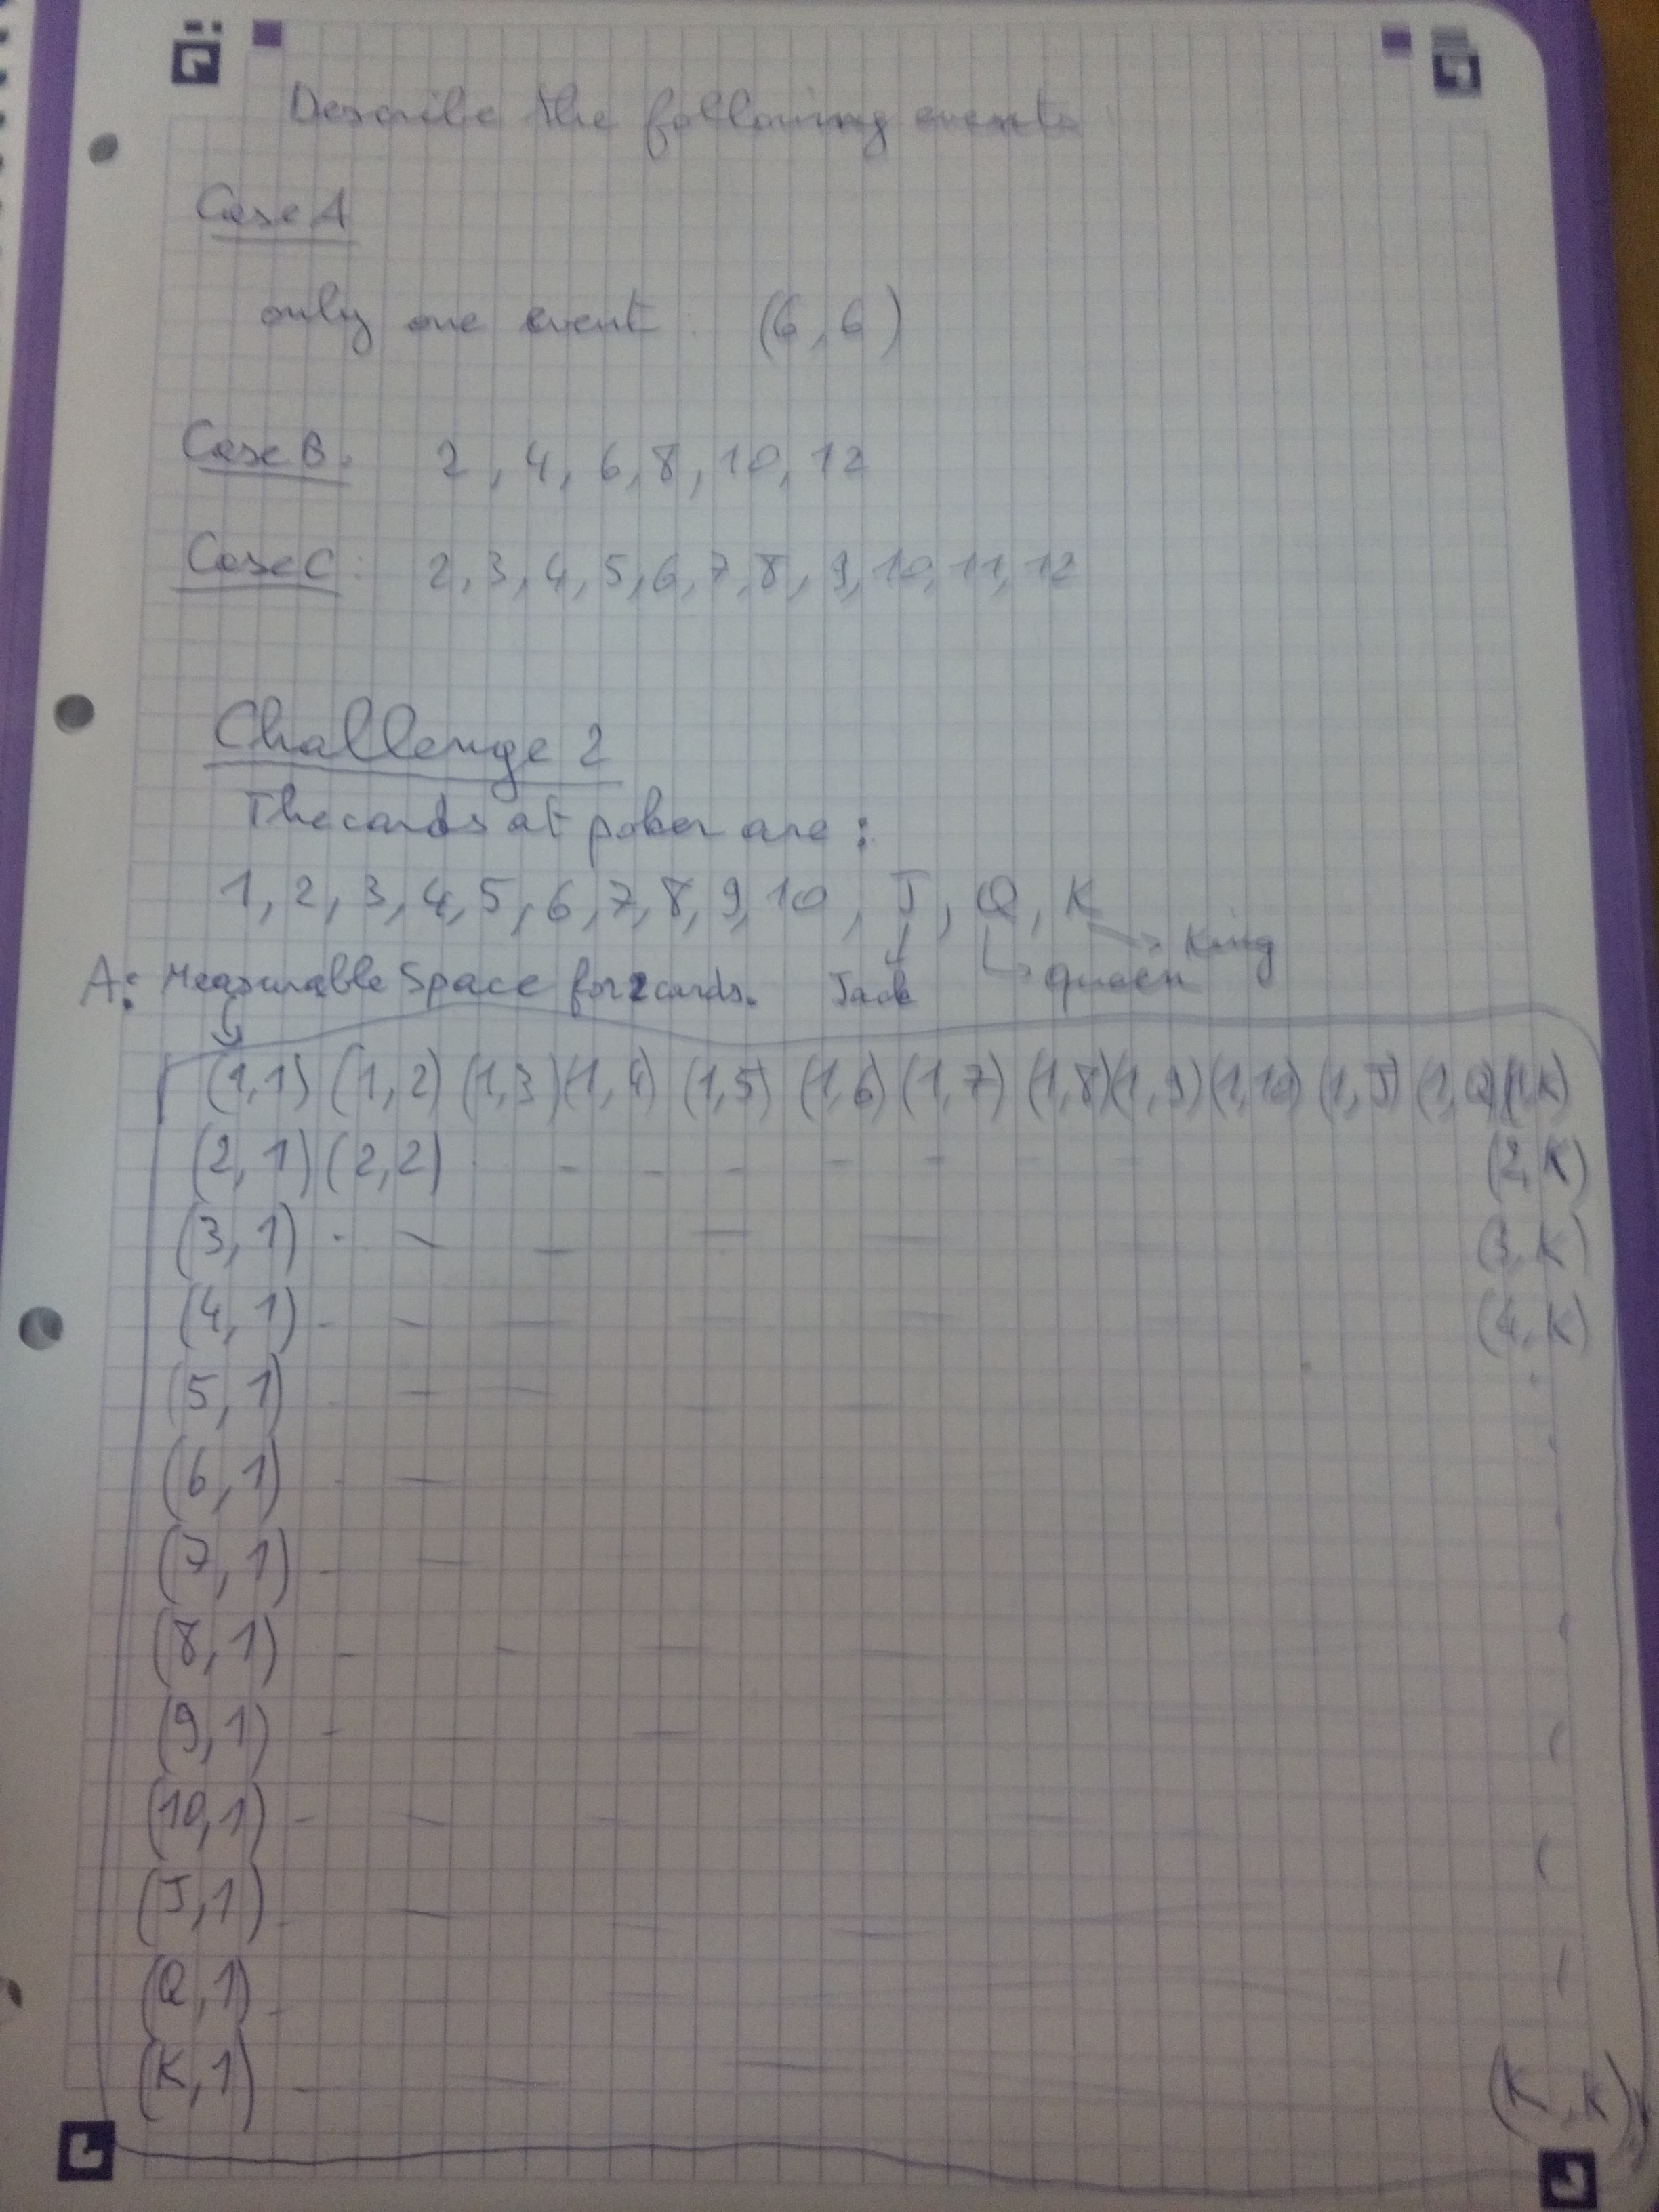 Describe the following events
Case A
only one event : (6, 6)
Case B. 2, 4, 6, 8, 10, 12
Case C: 2, 3, 4, 5, 6, 7, 8, 9, 10, 11, 12
Challenge 2
The cards at poker are:
1, 2, 3, 4, 5, 6, 7, 8, 9, 10, J, Q, K
King
A: Measurable Space for 2 cards. Jack queen
(1,1) (1,2) (1,3) (1,4) (1,5) (1,6) (1,7) (1,8) (1,9) (1,10) (1,J) (1,Q) (1,K)
(2,1) (2,2) - - - - - - - (2,K)
(3,1) - - - - - (3,K)
(4,1) - - - - (4,K)
(5,1) - - - -
(6,1) - -
(7,1) - -
(8,1) - - - -
(9,1) - - - -
(10,1) - - - -
(J,1) - - - -
(Q,1) -
(K,1) - - - (K,K)